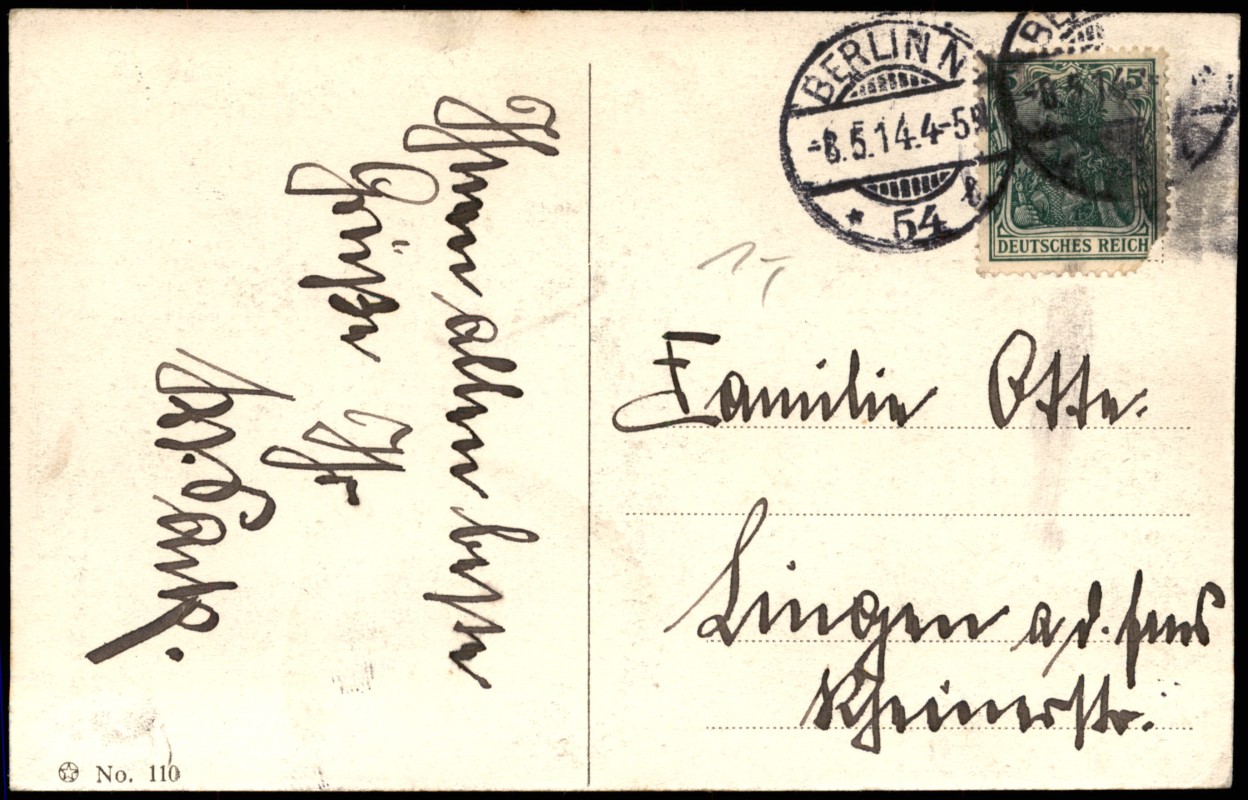 Ihnen allen beste
Grüße Ihr
BERLIN N
-8.5.14.4-5N
* 54 t
5
5
DEUTSCHES REICH
Familie Otte.
Lingen a/d. Ems
Rheinerstr.
No. 110